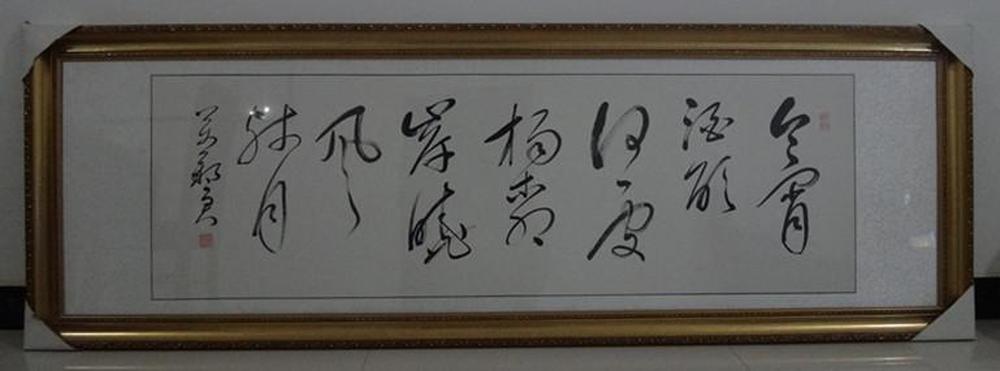 今宵
酒醒
何處
楊柳
岸曉
風
殘月